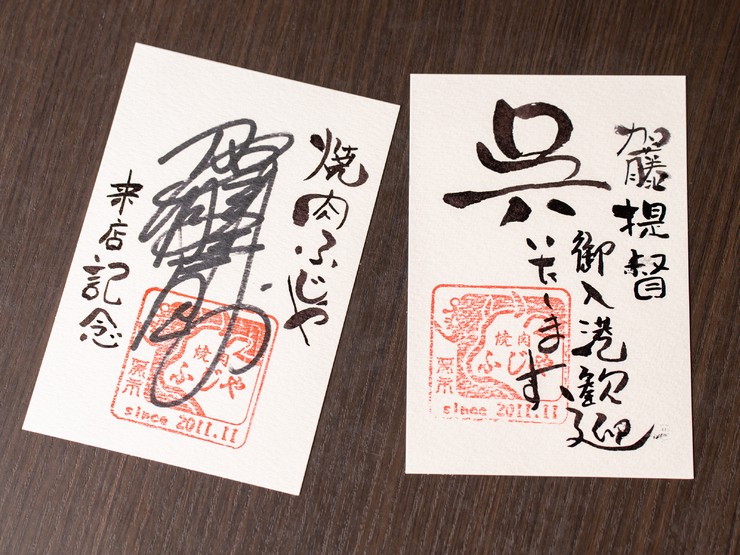 焼肉ふじや
来店記念
焼肉
ふじや
since 2011.11
加藤提督
御入港歓迎
いたします
呉
焼肉
ふじや
since 2011.11